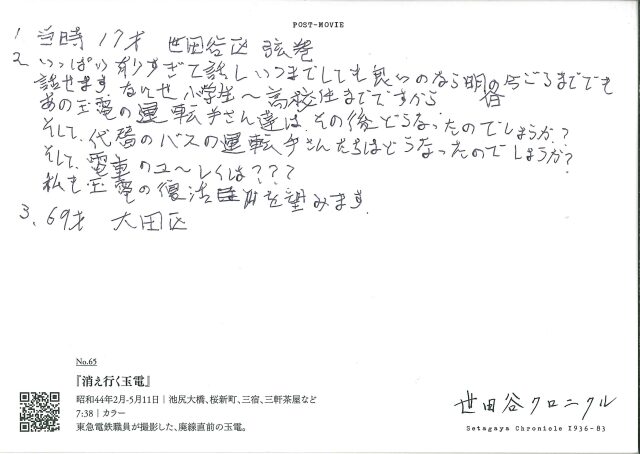 POST-MOVIE
1 当時 17才 世田谷区 弦巻
2、いっぱい有りすぎて話しいつまでしても良いのなら明の今ごろまででも
話せます なにせ小学生〜高校生までですから
あの玉電の運転手さん達は、その後どうなったのでしょうか?
そして、代替のバスの運転手さんたちはどうなったのでしょうか?
そして、電車のユーレイは???
私も玉電の復活を望みます.
3、69才 大田区
No.65
『消え行く玉電』
昭和44年2月-5月11日|池尻大橋、桜新町、三宿、三軒茶屋など
7:38|カラー
東急電鉄職員が撮影した、廃線直前の玉電。
世田谷クロニクル
Setagaya Chronicle 1936-83